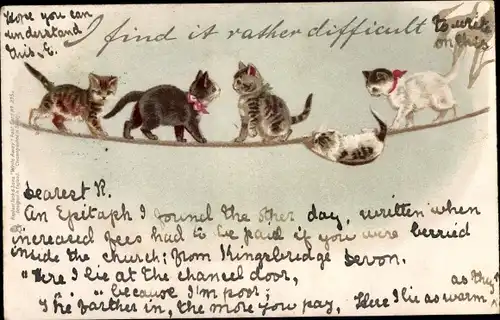 Hope you can
understand
this. E.
I find it rather difficult
to write
on this
Dearest R.
An Epitaph I found the other day, written when
increased fees had to be paid if you were berried
inside the church; from Kingsbridge Devon.
"Here I lie at the chancel door,
" " " " because I'm poor;
The farther in, the more you pay, Here I lie as warm,
as they